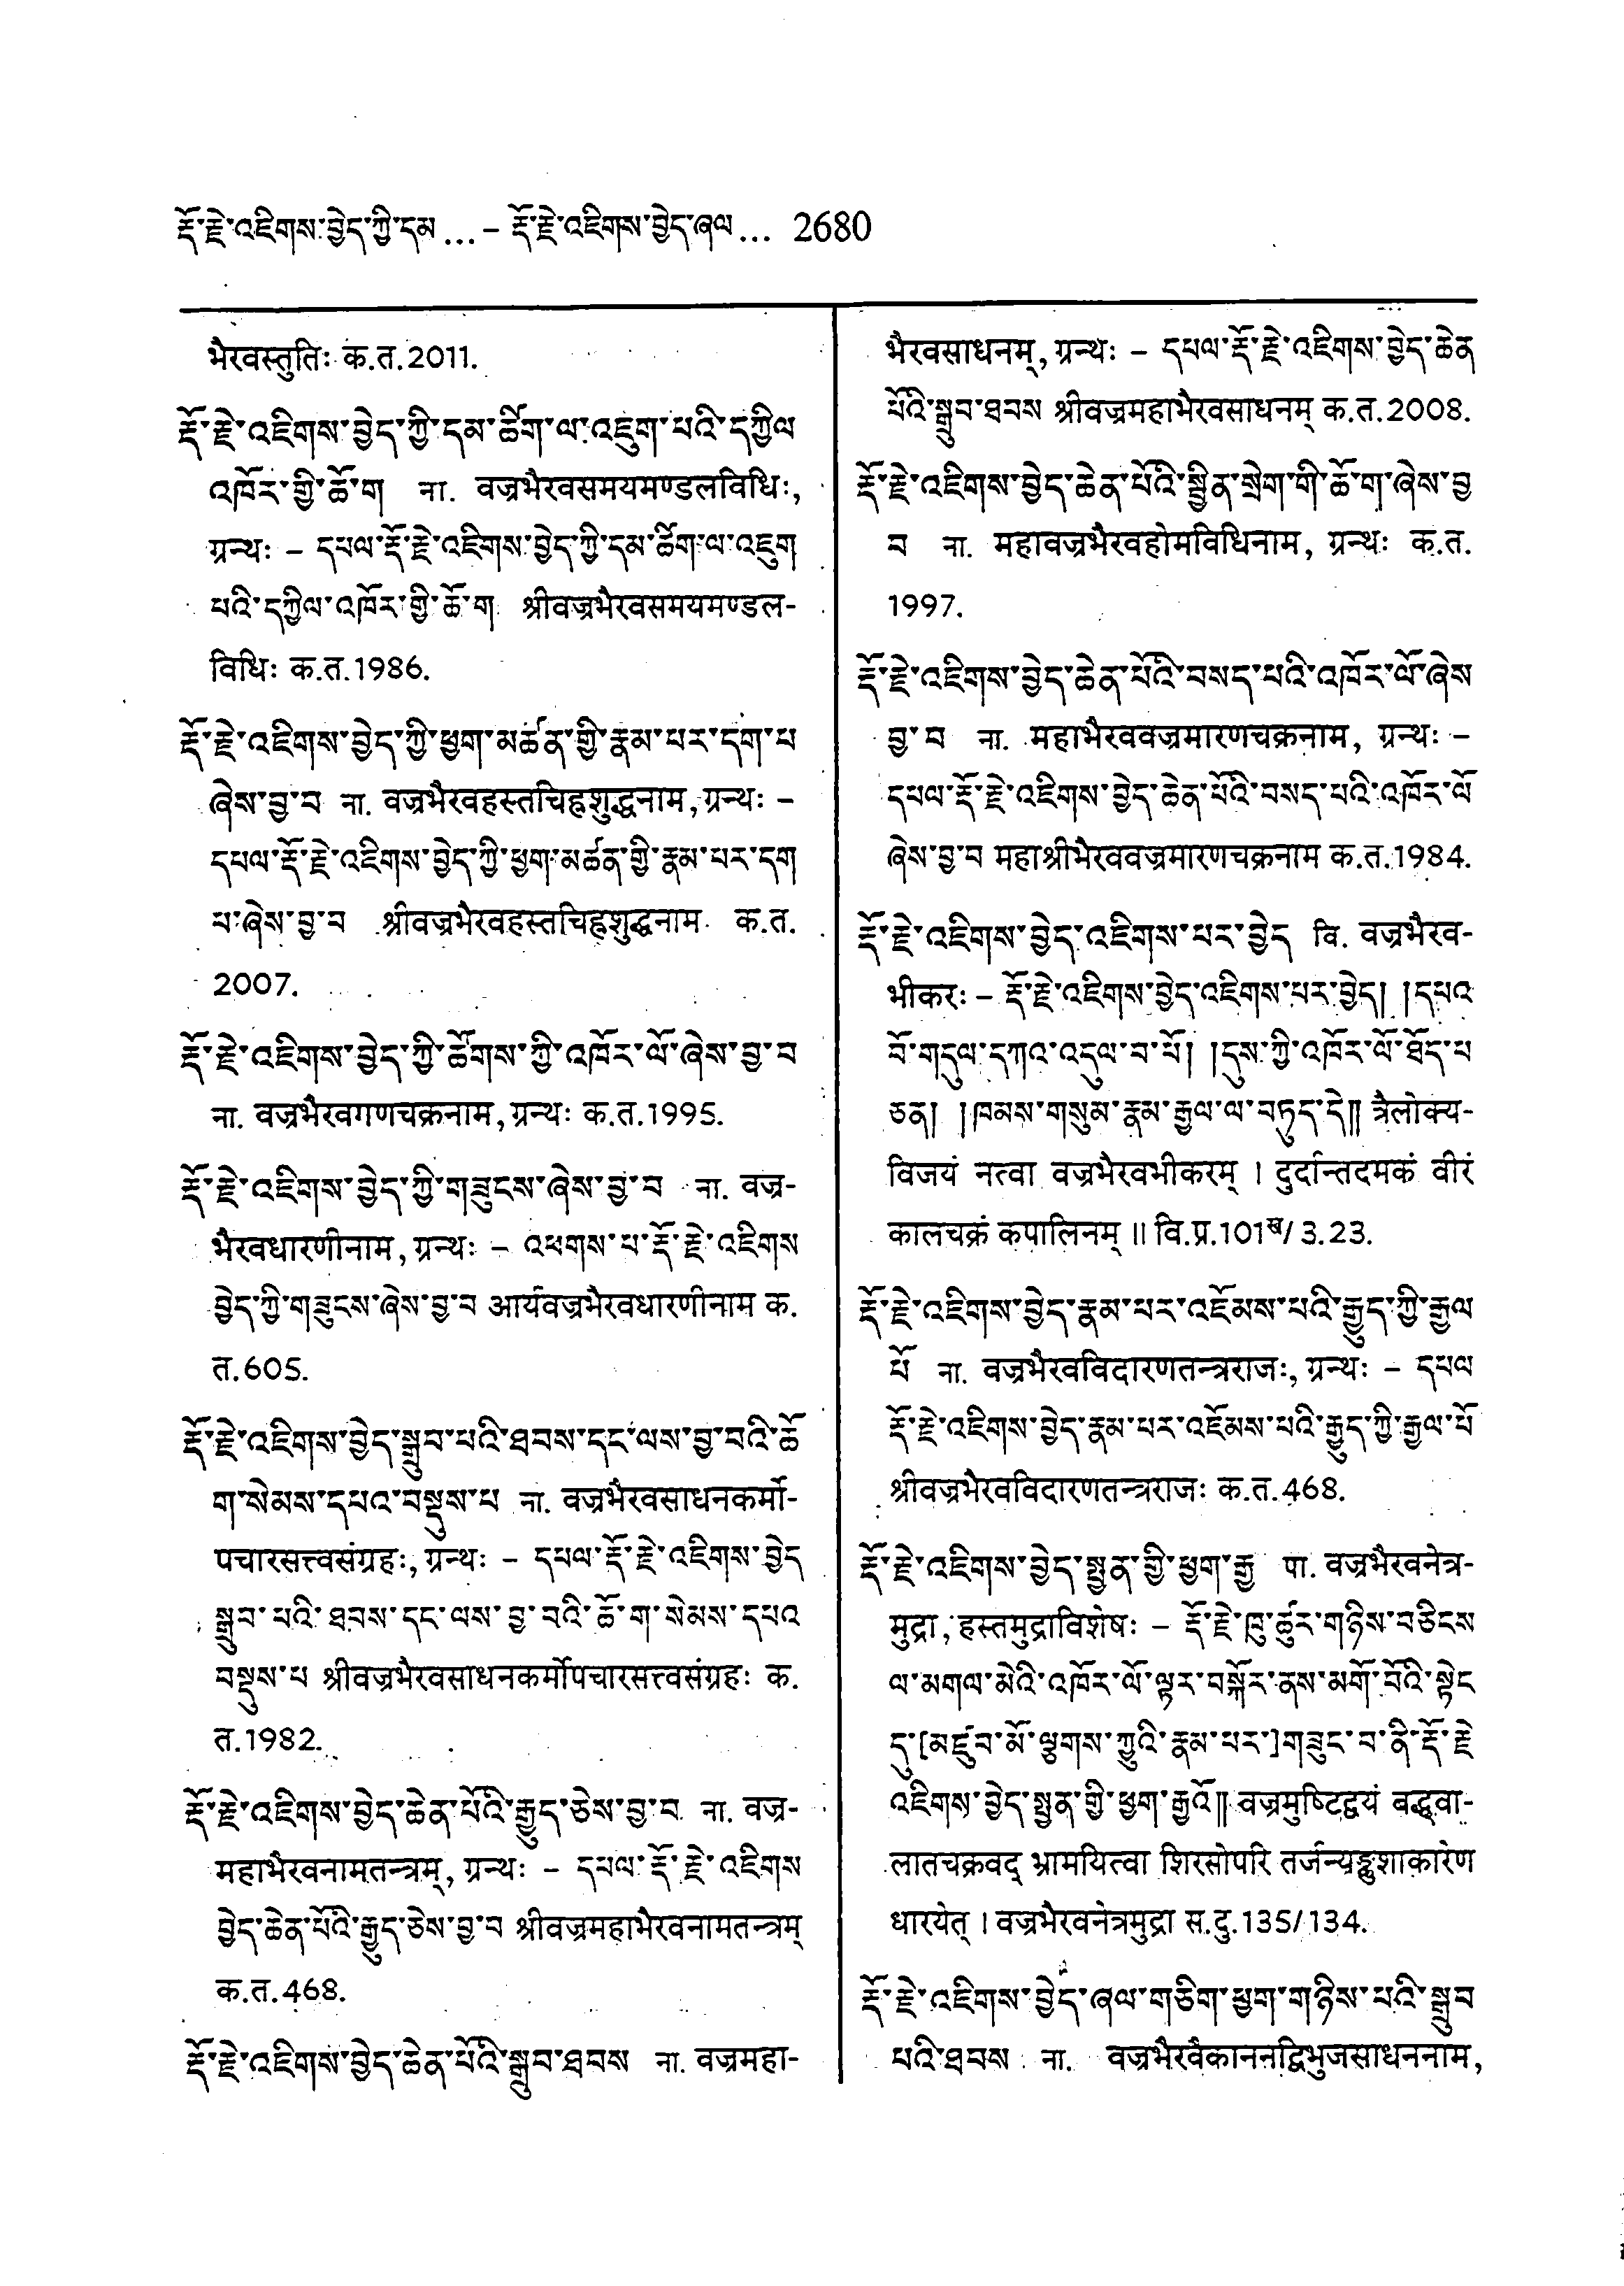 རྡོ་རྗེ་འཇིགས་བྱེད་ཀྱི་དམ ... – རྡོ་རྗེ་འཇིགས་བྱེད་ཞལ ... 2680
भैरवस्तुतिः क.त.2011.
རྡོ་རྗེ་འཇིགས་བྱེད་ཀྱི་དམ་ཚིག་ལ་འཇུག་པའི་དཀྱིལ
འཁོར་གྱི་ཆོ་ག ना. वज्रभैरवसमयमण्डलविधिः,
ग्रन्थः – དཔལ་རྡོ་རྗེ་འཇིགས་བྱེད་ཀྱི་དམ་ཚིག་ལ་འཇུག
པའི་དཀྱིལ་འཁོར་གྱི་ཆོ་ག श्रीवज्रभैरवसमयमण्डल-
विधिः क.त.1986.
རྡོ་རྗེ་འཇིགས་བྱེད་ཀྱི་ཕྱག་མཚན་གྱི་རྣམ་པར་དག་པ
ཞེས་བྱ་བ ना. वज्रभैरवहस्तचिह्नशुद्धनाम, ग्रन्थः –
དཔལ་རྡོ་རྗེ་འཇིགས་བྱེད་ཀྱི་ཕྱག་མཚན་གྱི་རྣམ་པར་དག
པ་ཞེས་བྱ་བ श्रीवज्रभैरवहस्तचिह्नशुद्धनाम क.त.
2007.
རྡོ་རྗེ་འཇིགས་བྱེད་ཀྱི་ཚོགས་ཀྱི་འཁོར་ལོ་ཞེས་བྱ་བ
ना. वज्रभैरवगणचक्रनाम, ग्रन्थः क.त.1995.
རྡོ་རྗེ་འཇིགས་བྱེད་ཀྱི་གཟུངས་ཞེས་བྱ་བ ना. वज्र-
भैरवधारणीनाम, ग्रन्थः – འཕགས་པ་རྡོ་རྗེ་འཇིགས
བྱེད་ཀྱི་གཟུངས་ཞེས་བྱ་བ आर्यवज्रभैरवधारणीनाम क.
त.605.
རྡོ་རྗེ་འཇིགས་བྱེད་སྒྲུབ་པའི་ཐབས་དང་ལས་བྱ་བའི་ཆོ
ག་སེམས་དཔའ་བསྡུས་པ ना. वज्रभैरवसाधनकर्मो-
पचारसत्त्वसंग्रहः, ग्रन्थः – དཔལ་རྡོ་རྗེ་འཇིགས་བྱེད
སྒྲུབ་པའི་ཐབས་དང་ལས་བྱ་བའི་ཆོ་ག་སེམས་དཔའ
བསྡུས་པ श्रीवज्रभैरवसाधनकर्मोपचारसत्त्वसंग्रहः क.
त.1982.
རྡོ་རྗེ་འཇིགས་བྱེད་ཆེན་པོའི་རྒྱུད་ཅེས་བྱ་བ ना. वज्र-
महाभैरवनामतन्त्रम्, ग्रन्थः – དཔལ་རྡོ་རྗེ་འཇིགས
བྱེད་ཆེན་པོའི་རྒྱུད་ཅེས་བྱ་བ श्रीवज्रमहाभैरवनामतन्त्रम्
क.त.468.
རྡོ་རྗེ་འཇིགས་བྱེད་ཆེན་པོའི་སྒྲུབ་ཐབས ना. वज्रमहा-
भैरवसाधनम्, ग्रन्थः – དཔལ་རྡོ་རྗེ་འཇིགས་བྱེད་ཆེན
པོའི་སྒྲུབ་ཐབས श्रीवज्रमहाभैरवसाधनम् क.त.2008.
རྡོ་རྗེ་འཇིགས་བྱེད་ཆེན་པོའི་སྦྱིན་སྲེག་གི་ཆོ་ག་ཞེས་བྱ
བ ना. महावज्रभैरवहोमविधिनाम, ग्रन्थः क.त.
1997.
རྡོ་རྗེ་འཇིགས་བྱེད་ཆེན་པོའི་བསད་པའི་འཁོར་ལོ་ཞེས
བྱ་བ ना. महाभैरववज्रमारणचक्रनाम, ग्रन्थः –
དཔལ་རྡོ་རྗེ་འཇིགས་བྱེད་ཆེན་པོའི་བསད་པའི་འཁོར་ལོ
ཞེས་བྱ་བ महाश्रीभैरववज्रमारणचक्रनाम क.त.1984.
རྡོ་རྗེ་འཇིགས་བྱེད་འཇིགས་པར་བྱེད वि. वज्रभैरव-
भीकरः – རྡོ་རྗེ་འཇིགས་བྱེད་འཇིགས་པར་བྱེད། །དཔའ
བོ་གདུལ་དཀའ་འདུལ་བ་པོ། །དུས་ཀྱི་འཁོར་ལོ་ཐོད་པ
ཅན། །ཁམས་གསུམ་རྣམ་རྒྱལ་ལ་བཏུད་དེ॥ त्रैलोक्य-
विजयं नत्वा वज्रभैरवभीकरम् । दुर्दान्तदमकं वीरं
कालचक्रं कपालिनम् ॥ वि.प्र.101ख/ 3.23.
རྡོ་རྗེ་འཇིགས་བྱེད་རྣམ་པར་འཇོམས་པའི་རྒྱུད་ཀྱི་རྒྱལ
པོ ना. वज्रभैरवविदारणतन्त्रराजः, ग्रन्थः – དཔལ
རྡོ་རྗེ་འཇིགས་བྱེད་རྣམ་པར་འཇོམས་པའི་རྒྱུད་ཀྱི་རྒྱལ་པོ
श्रीवज्रभैरवविदारणतन्त्रराजः क.त.468.
རྡོ་རྗེ་འཇིགས་བྱེད་སྤྱན་གྱི་ཕྱག་རྒྱ पा. वज्रभैरवनेत्र-
मुद्रा, हस्तमुद्राविशेषः – རྡོ་རྗེ་ཁུ་ཚུར་གཉིས་བཅིངས
ལ་མགལ་མེའི་འཁོར་ལོ་ལྟར་བསྐོར་ནས་མགོ་བོའི་སྟེང
དུ་[མཛུབ་མོ་ལྕགས་ཀྱུའི་རྣམ་པར་]གཟུང་བ་ནི་རྡོ་རྗེ
འཇིགས་བྱེད་སྤྱན་གྱི་ཕྱག་རྒྱའོ॥ वज्रमुष्टिद्वयं वद्ध्वा-
लातचक्रवद् भ्रामयित्वा शिरसोपरि तर्जन्यङ्कुशाकारेण
धारयेत् । वज्रभैरवनेत्रमुद्रा स.दु.135/134.
རྡོ་རྗེ་འཇིགས་བྱེད་ཞལ་གཅིག་ཕྱག་གཉིས་པའི་སྒྲུབ
པའི་ཐབས ना. वज्रभैरवैकाननद्विभुजसाधननाम,